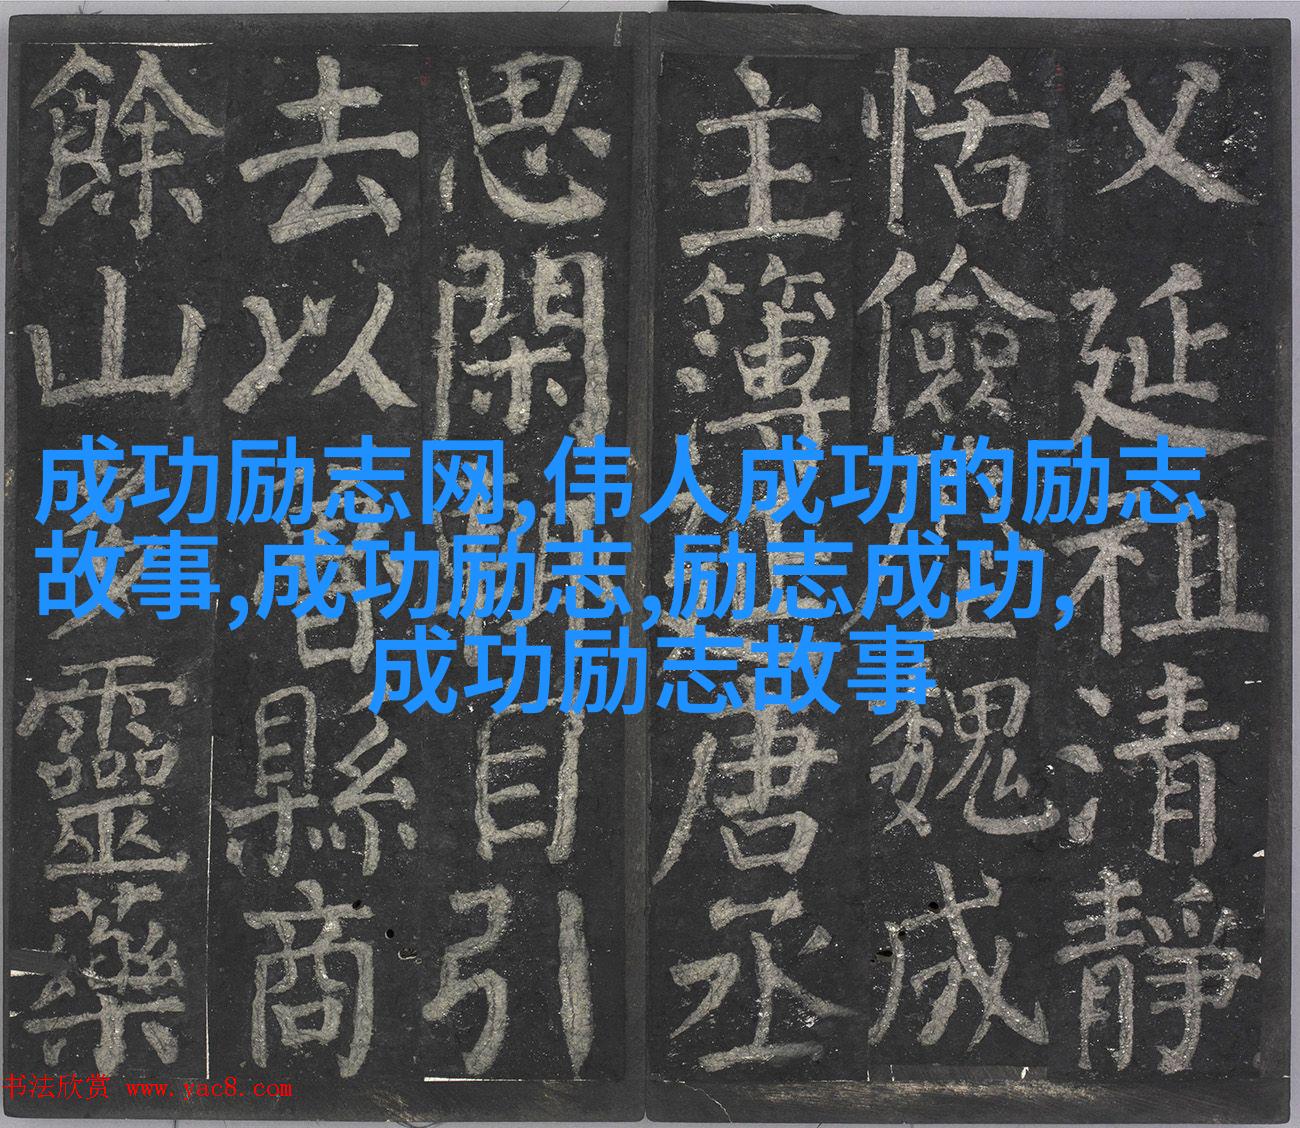 成功励志网,伟人成功的励志
故事,成功励志,励志成功,
成功励志故事
父延祖清靜
恬儉魏成
主簿唐丞
思閑自引
去以縣商
餘山多靈藥
书法欣赏 www.yac8.com